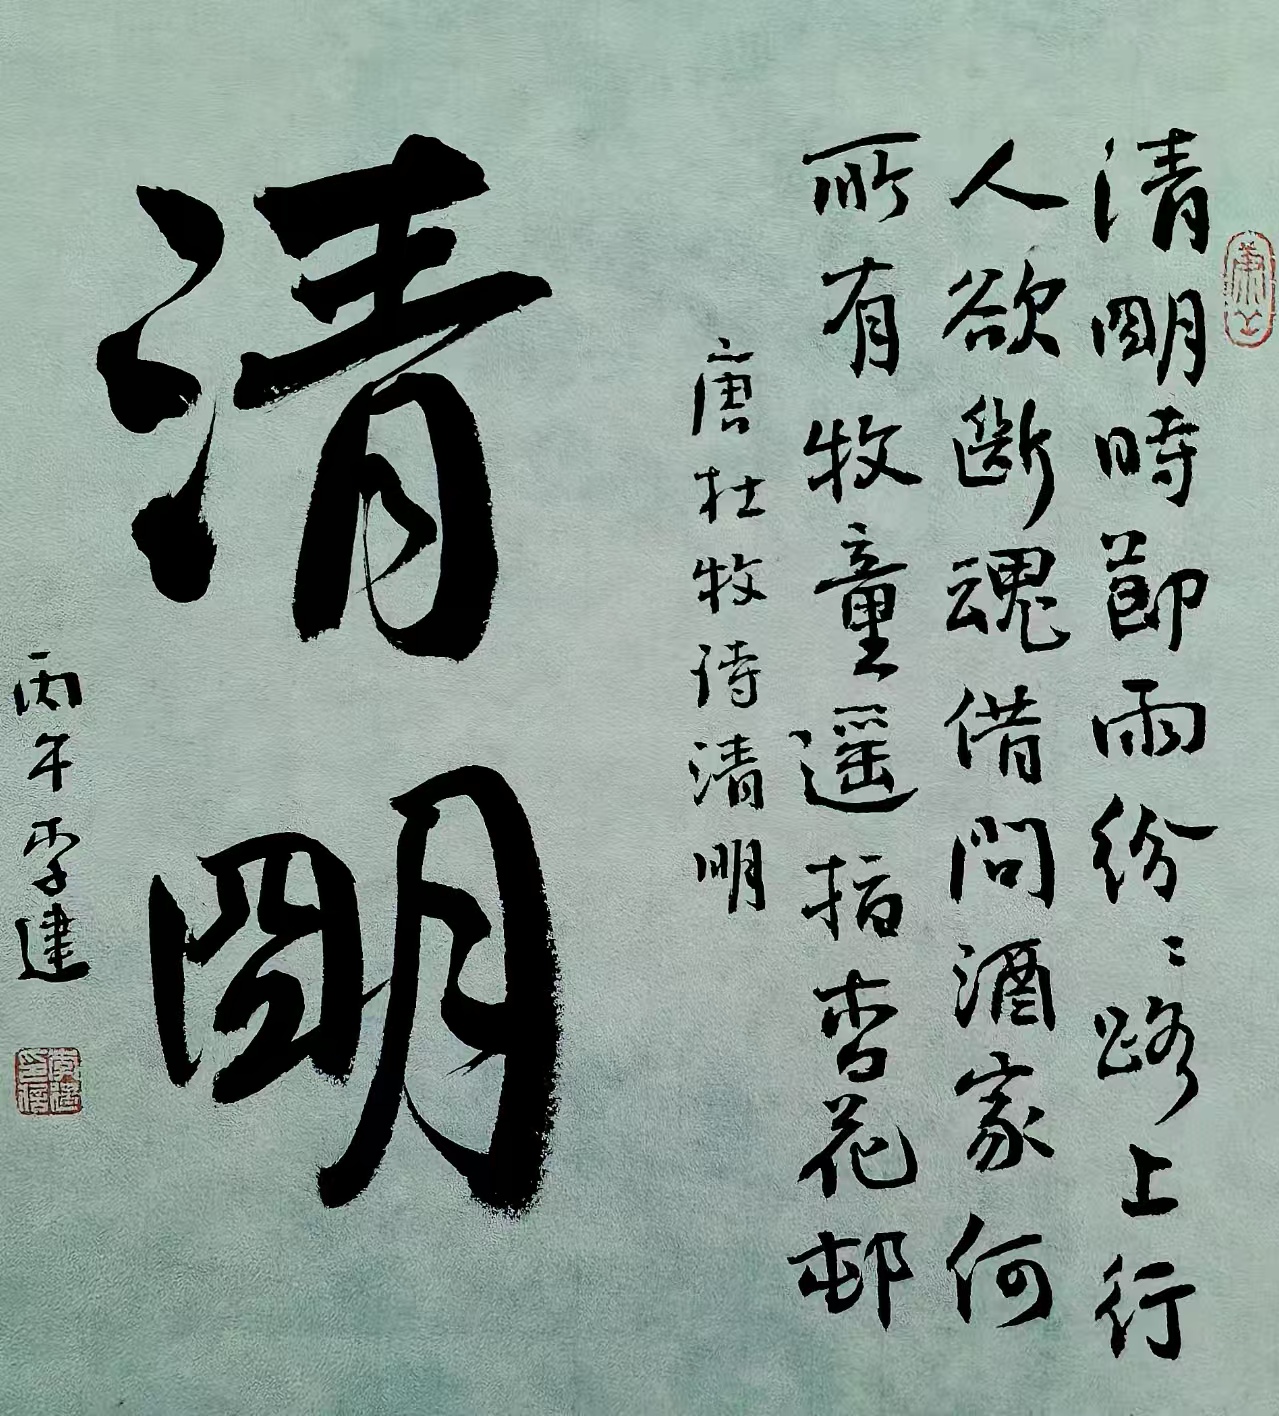 清朙時節雨紛〻路上行
人欲斷魂借問酒家何
所有牧童遥指杏花邨
唐杜牧诗清明
清朙
丙午李建